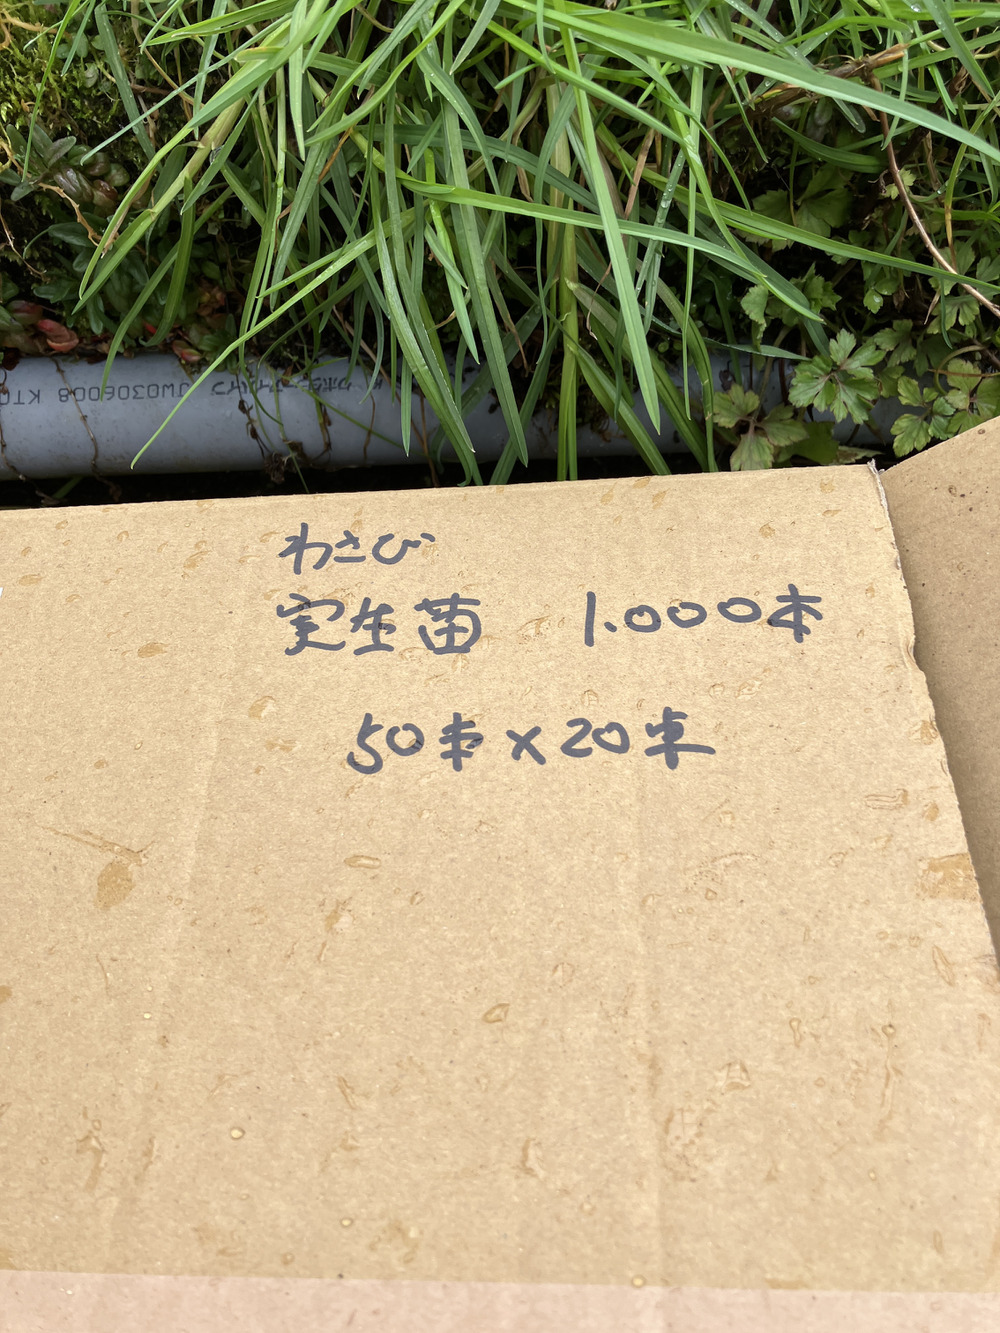 わさび
実生苗 1.000本
50本×20束